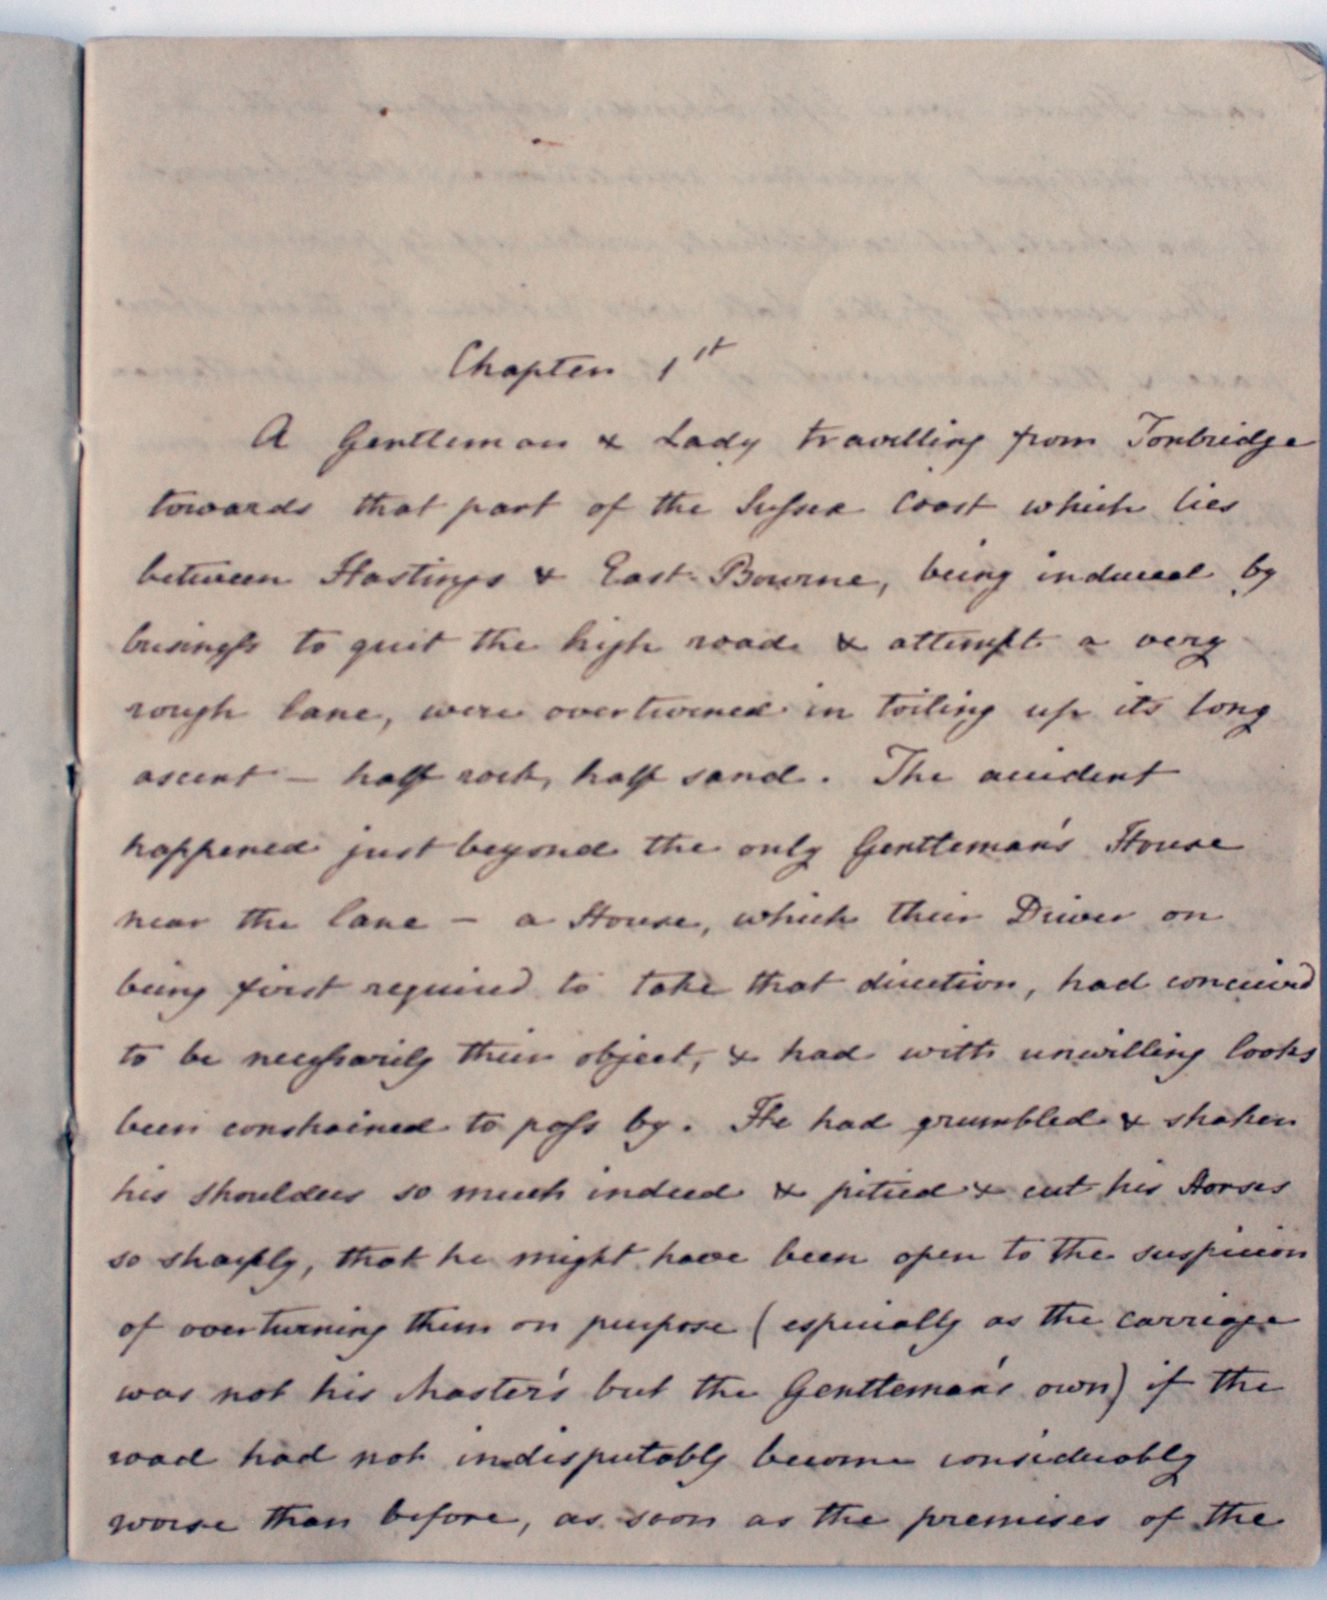 Chapter 1st
A Gentleman & Lady travelling from Tonbridge
towards that part of the Sussex Coast which lies
between Hastings & East Bourne, being induced by
business to quit the high road & attempt a very
rough lane, were overturned in toiling up its long
ascent – half rock, half sand. The accident
happened just beyond the only Gentleman's House
near the lane – a House, which their Driver on
being first required to take that direction, had conceived
to be necessarily their object, & had with unwilling looks
been constrained to pass by. He had grumbled & shaken
his shoulders so much indeed & pitied & cut his Horses
so sharply, that he might have been open to the suspicion
of overturning them on purpose (especially as the carriage
was not his Master's but the Gentleman's own) if the
road had not indisputably become considerably
worse than before, as soon as the premises of the